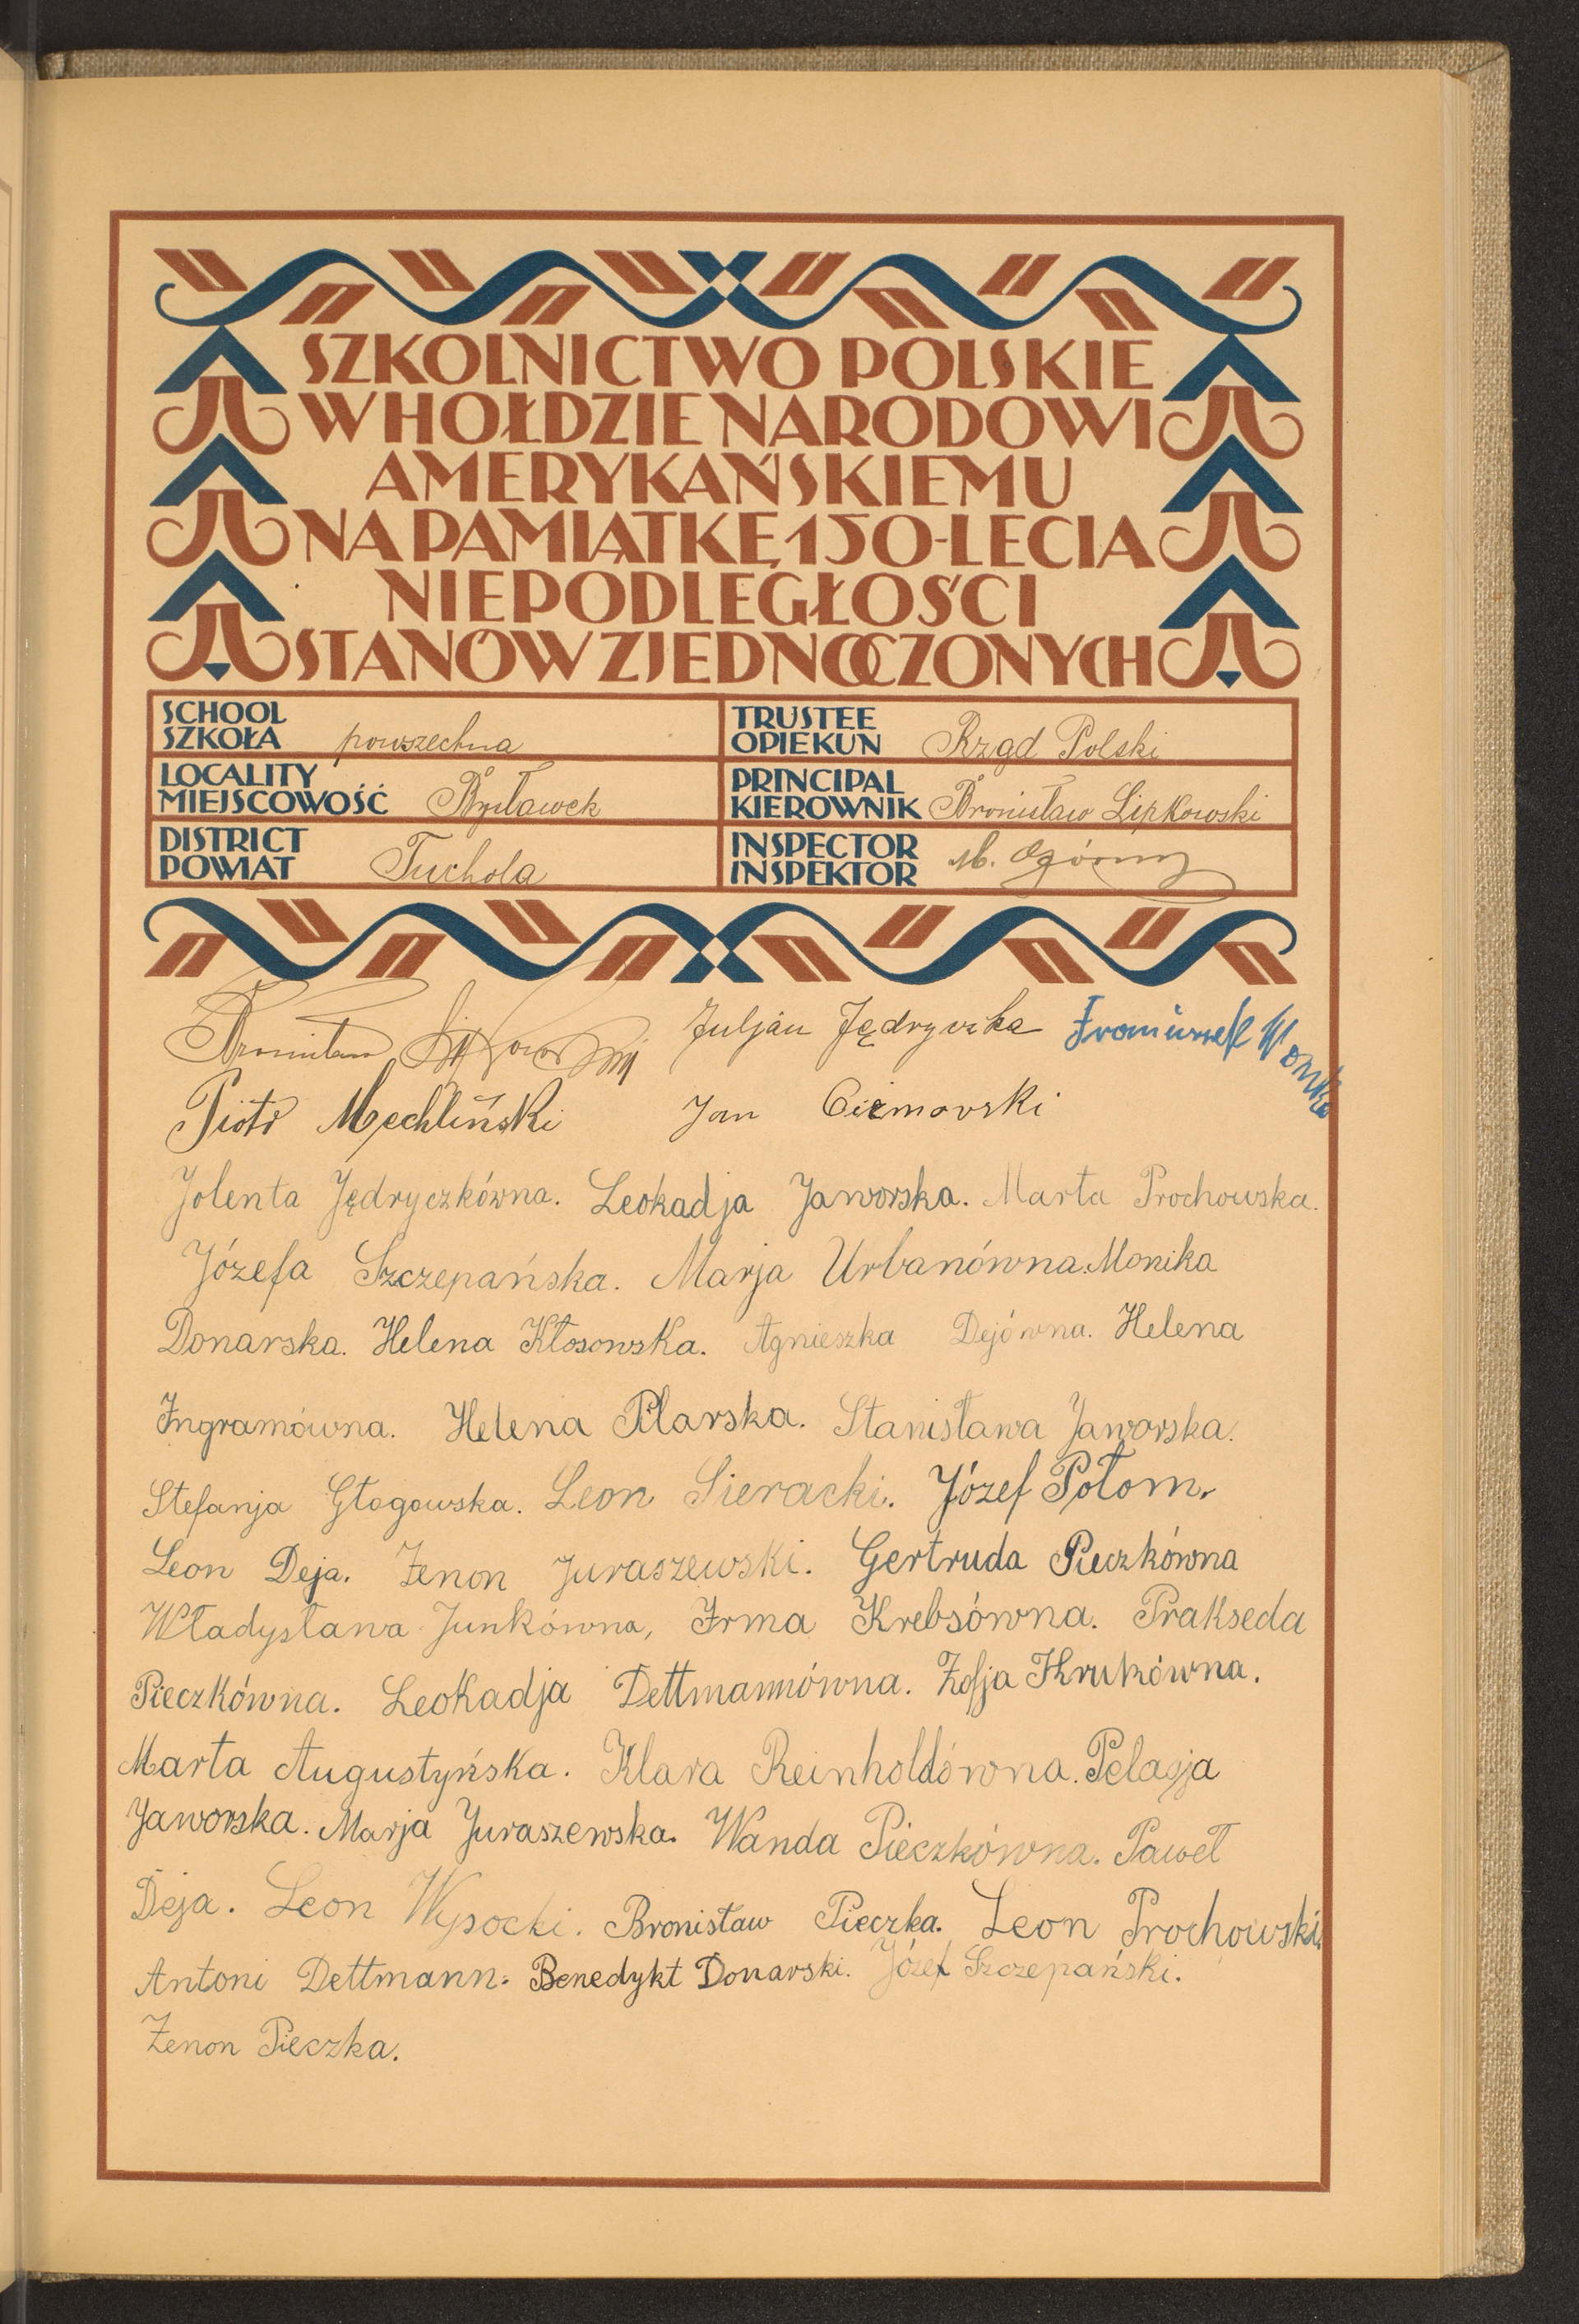 SZKOLNICTWO POLSKIE
W HOŁDZIE NARODOWI
AMERYKAŃSKIEMU
NA PAMIĄTKĘ 150-LECIA
NIEPODLEGŁOŚCI
STANÓW ZJEDNOCZONYCH
SCHOOL
SZKOŁA powszechna
TRUSTEE
OPIEKUN Rząd Polski
LOCALITY
MIEJSCOWOŚĆ Bysławek
PRINCIPAL
KIEROWNIK Bronisław Lipkowski
DISTRICT
POWIAT Tuchola
INSPECTOR
INSPEKTOR M. Ogórny
Bronisław Lipkowski Juljan Jędryczka Franciszek Wonka
Piotr Mechliński Jan Ciemowski
Jolenta Jędryczkówna. Leokadja Jaworska. Marta Prochowska.
Józefa Szczepańska. Marja Urbanówna. Monika
Donarska. Helena Kłosowska. Agnieszka Dejówna. Helena
Ingramówna. Helena Pilarska. Stanisława Jaworska.
Stefanja Głogowska. Leon Sieracki. Józef Połom.
Leon Deja. Zenon Juraszewski. Gertruda Pieczkówna
Władysława Junkówna, Irma Krebsówna. Prakseda
Pieczkówna. Leokadja Dettmannówna. Zofja Krukówna.
Marta Augustyńska. Klara Reinholdówna. Pelagja
Jaworska. Marja Juraszewska. Wanda Pieczkówna. Paweł
Deja. Leon Wysocki. Bronisław Pieczka. Leon Prochowski.
Antoni Dettmann. Benedykt Donarski. Józef Szczepański.
Zenon Pieczka.